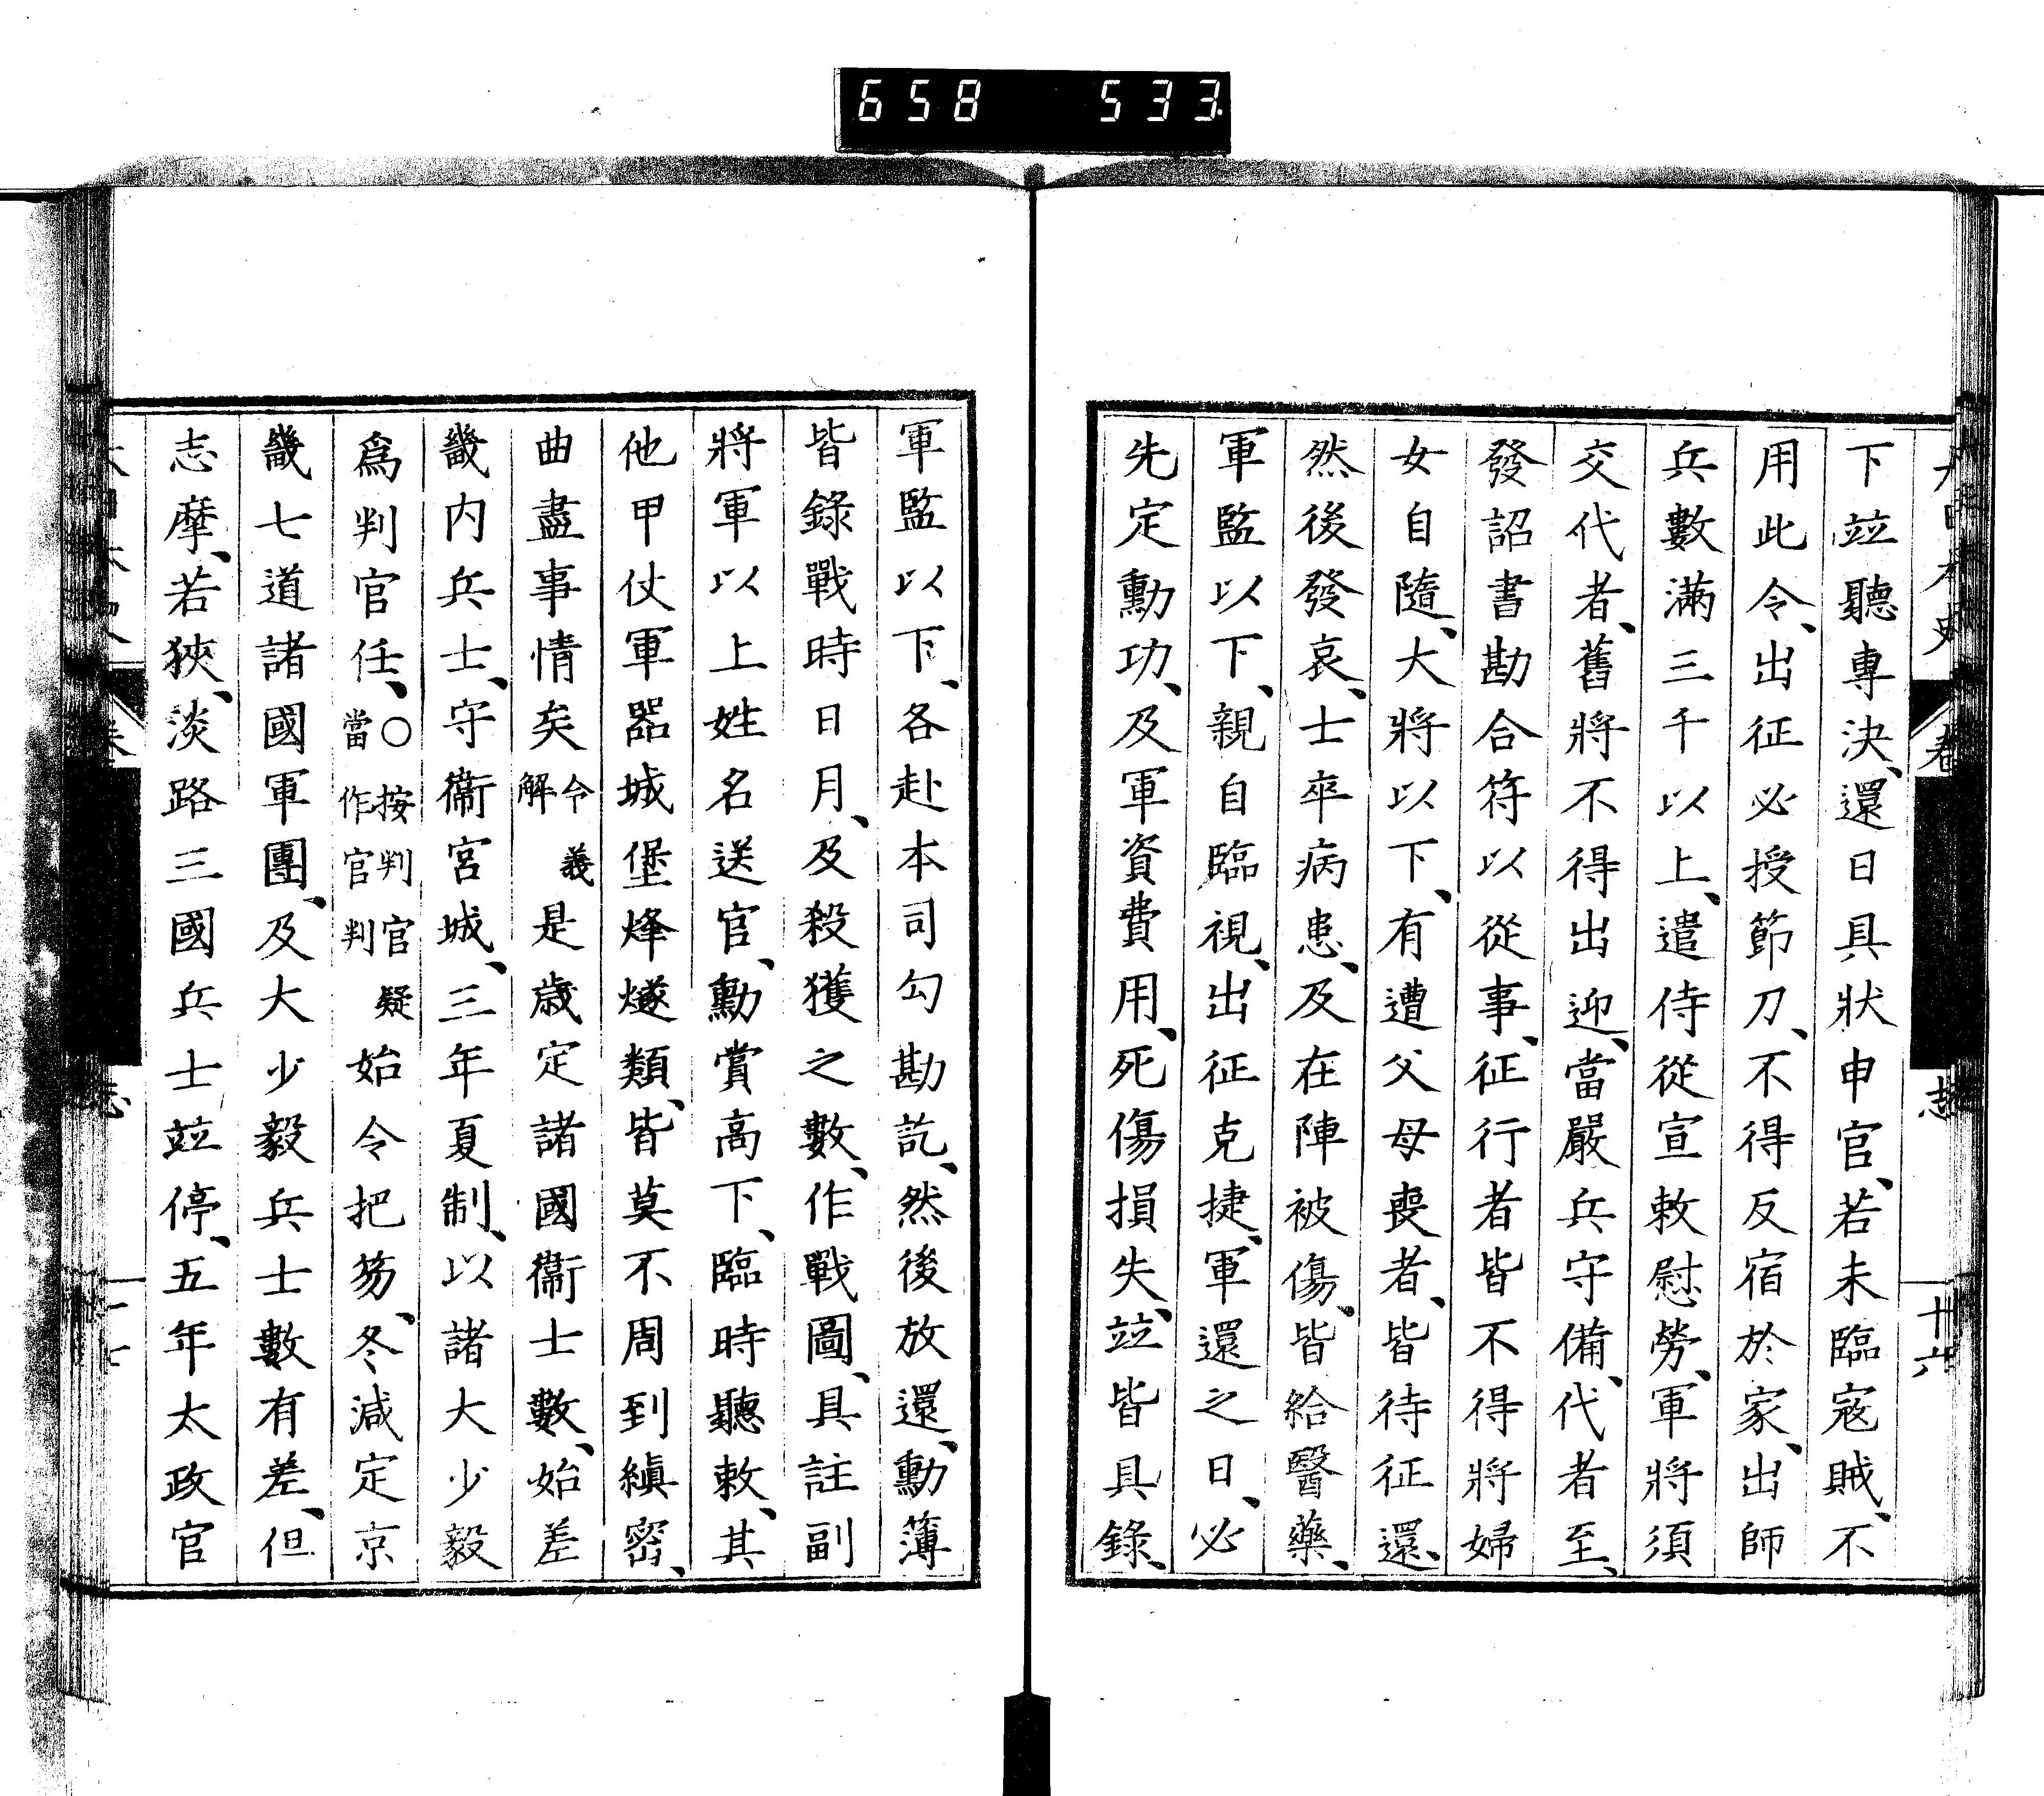 658 533
下竝聽專決、還日具狀申官、若未臨寇賊、不
用此令、出征必授節刀、不得反宿於家、出師
兵數滿三千以上、遣侍從宣敕慰勞、軍將須
交代者、舊將不得出迎、當嚴兵守備、代者至、
發詔書勘合符以從事、征行者皆不得將婦
女自隨、大將以下、有遭父母喪者、皆待征還、
然後發哀、士卒病患、及在陣被傷、皆給醫藥、
軍監以下、親自臨視、出征克捷、軍還之日、必
先定勳功、及軍資費用、死傷損失、竝皆具錄、
軍監以下、各赴本司勾勘訖、然後放還、勳簿
皆錄戰時日月、及殺獲之數、作戰圖、具註副
將軍以上姓名送官、勳賞高下、臨時聽敕、其
他甲仗軍器城堡烽燧類、皆莫不周到縝密、
曲盡事情矣令義解是歲定諸國衞士數、始差
畿内兵士、守衞宮城、三年夏制、以諸大少毅
爲判官任、〇按判官疑當作官判始令把笏、冬減定京
畿七道諸國軍團、及大少毅兵士數有差、但
志摩、若狹、淡路三國兵士竝停、五年太政官
志
十六